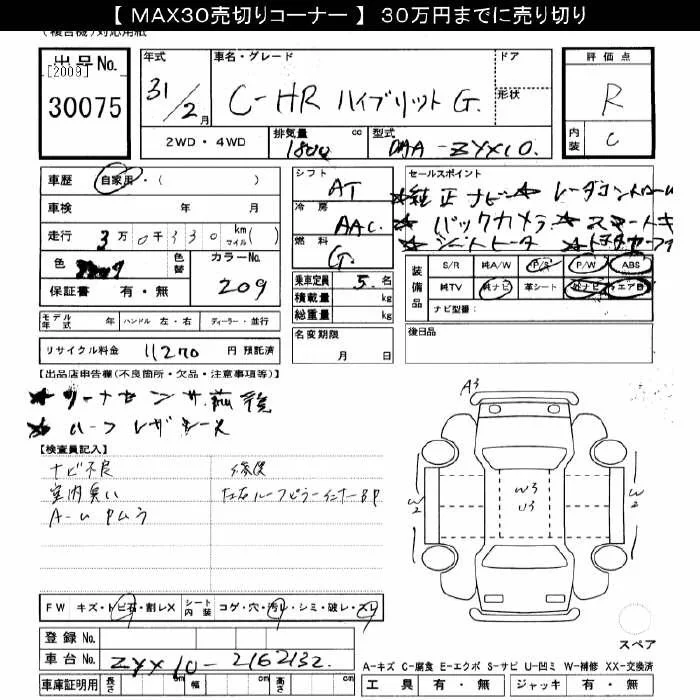 【 MAX30売切りコーナー 】 30万円までに売り切り
(複合機) 対応用紙
出品No.
[2009]
30075
年式
31/2月
車名・グレード
C-HR ハイブリット G.
ドア
形状
2WD・4WD
排気量 1800 cc
型式 DAA-ZYX10.
評価点
R
内装 C
車歴 自家用・( )
車検 年 月
走行 3万0千330 km マイル( )
色 209
色替
カラーNo. 209
保証書 有・無
シフト AT
冷房 AAC.
燃料 G.
乗車定員 5.名
積載量 kg
総重量 kg
セールスポイント
★純正ナビ ★レーダコントロール
★バックカメラ ★スマートキ
★シートヒータ
装備品
S/R 純A/W P/S P/W ABS
純TV 純ナビ 革シート 外ナビ エアB
ナビ型番:
モデル年式 年 ハンドル 左・右 ディーラー・並行
リサイクル料金 11270 円 預託済
名変期限
月 日
後日品
【出品店申告欄(不良箇所・欠品・注意事項等)】
★ソーナセンサ.前後
★ハーフレザシース
【検査員記入】
ナビ不良
室内臭い
A-u Pムラ
修復
左右ルーフピラーインナーBP
A3
W2
W3
U3
W2
FW キズ・トビ石・割レX
シート内装 コゲ・穴・汚レ・シミ・破レ・スレ
登録No.
車台No. ZYX10-2162132.
車庫証明用 長さ cm 幅 cm 高さ cm
スペア
A-キズ C-腐食 E-エクボ S-サビ U-凹ミ W-補修 XX-交換済
工具 有・無 ジャッキ 有・無